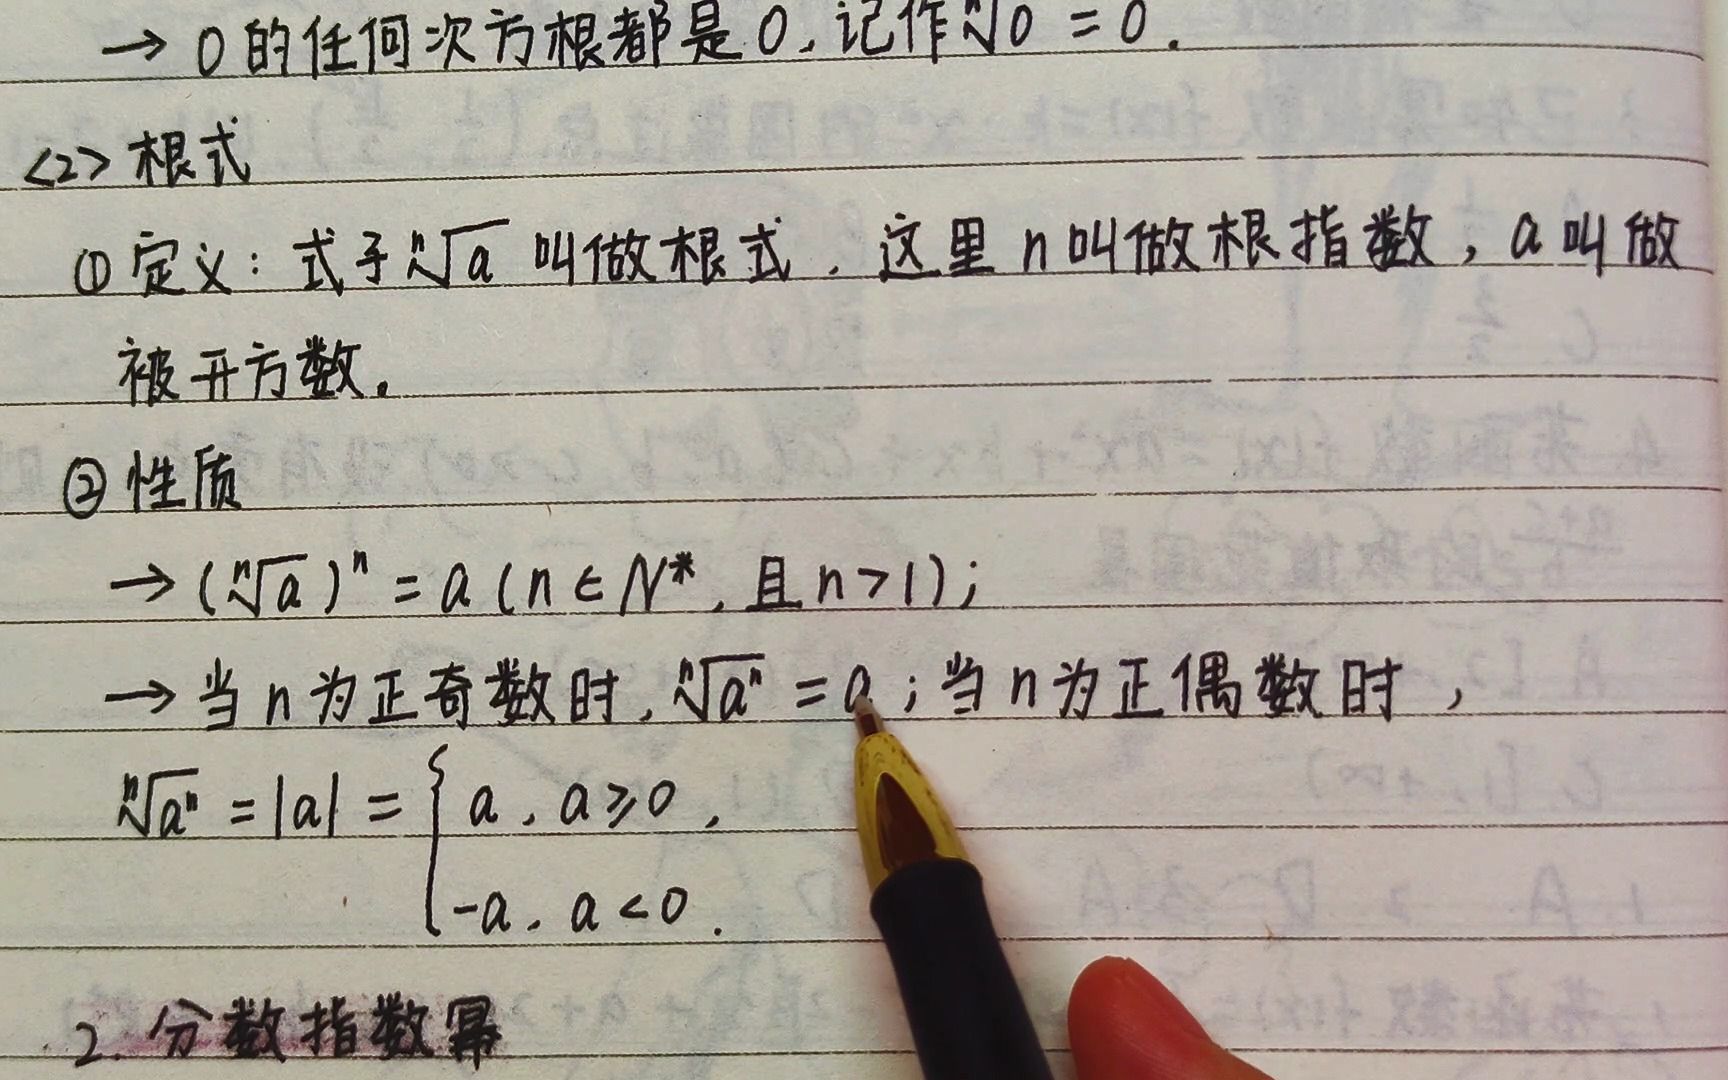 → 0的任何次方根都是0，记作ⁿ√0 = 0.
<2> 根式
① 定义：式子ⁿ√a 叫做根式，这里 n 叫做根指数，a 叫做
被开方数。
② 性质
→ (ⁿ√a)ⁿ = a (n∈N*，且 n>1)；
→ 当 n 为正奇数时，ⁿ√aⁿ = a；当 n 为正偶数时，
ⁿ√aⁿ = |a| = { a，a≥0，
-a，a<0.
2. 分数指数幂